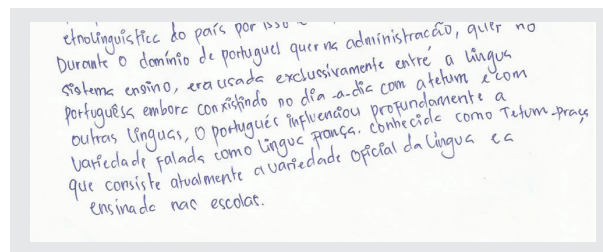 etnolinguistica do país por isso
Durante o domínio de portuguel quer na administraccão, quer no
sistema ensino, era usada exclussivamente entre a lingua
portuguêsa embora conxistindo no dia-a-dia com a tetum e com
outras línguas, O portugués influenciou profundamente a
variedade falada como lingua franca. conhecida como Tetum-praça
que consiste atualmente a variedade oficial da Lingua e a
ensinada nas escolas.